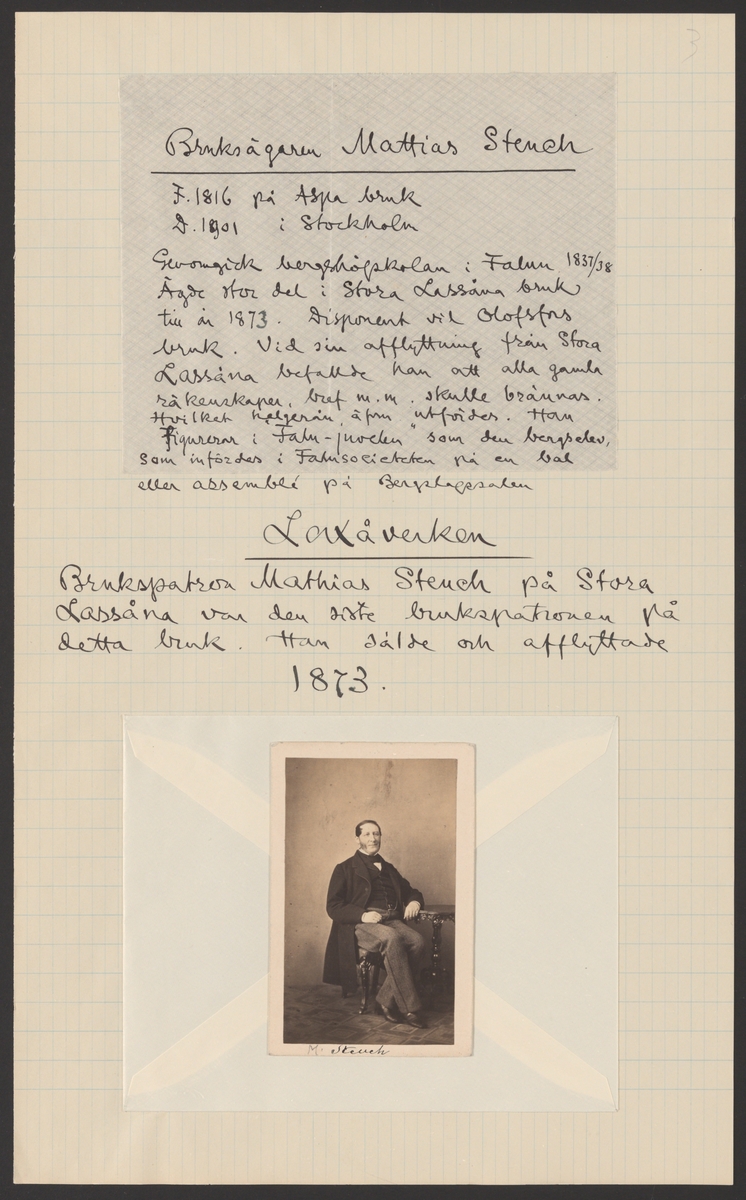 3
Bruksägaren Mattias Stench
F. 1816 på Aspa bruk
D. 1901 i Stockholm
Genomgick bergshögskolan i Falun 1837/38
Ägde stor del i Stora Lassåna bruk
till år 1873. Disponent vid Olofsfors
bruk. Vid sin afflyttning från Stora
Lassåna befallde han att alla gamla
räkenskaper, bref m.m. skulle brännas.
Hvilket helgerån, äfven utfördes. Han
figurerar i "Falu-juvelen" som den bergselev,
som infördes i Falusocieteten på en bal
eller assemblé på Bergslagssalen
Laxåverken
Brukspatron Mathias Stench på Stora
Lassåna var den siste brukspatronen på
detta bruk. Han sålde och afflyttade
1873.
M. Stench